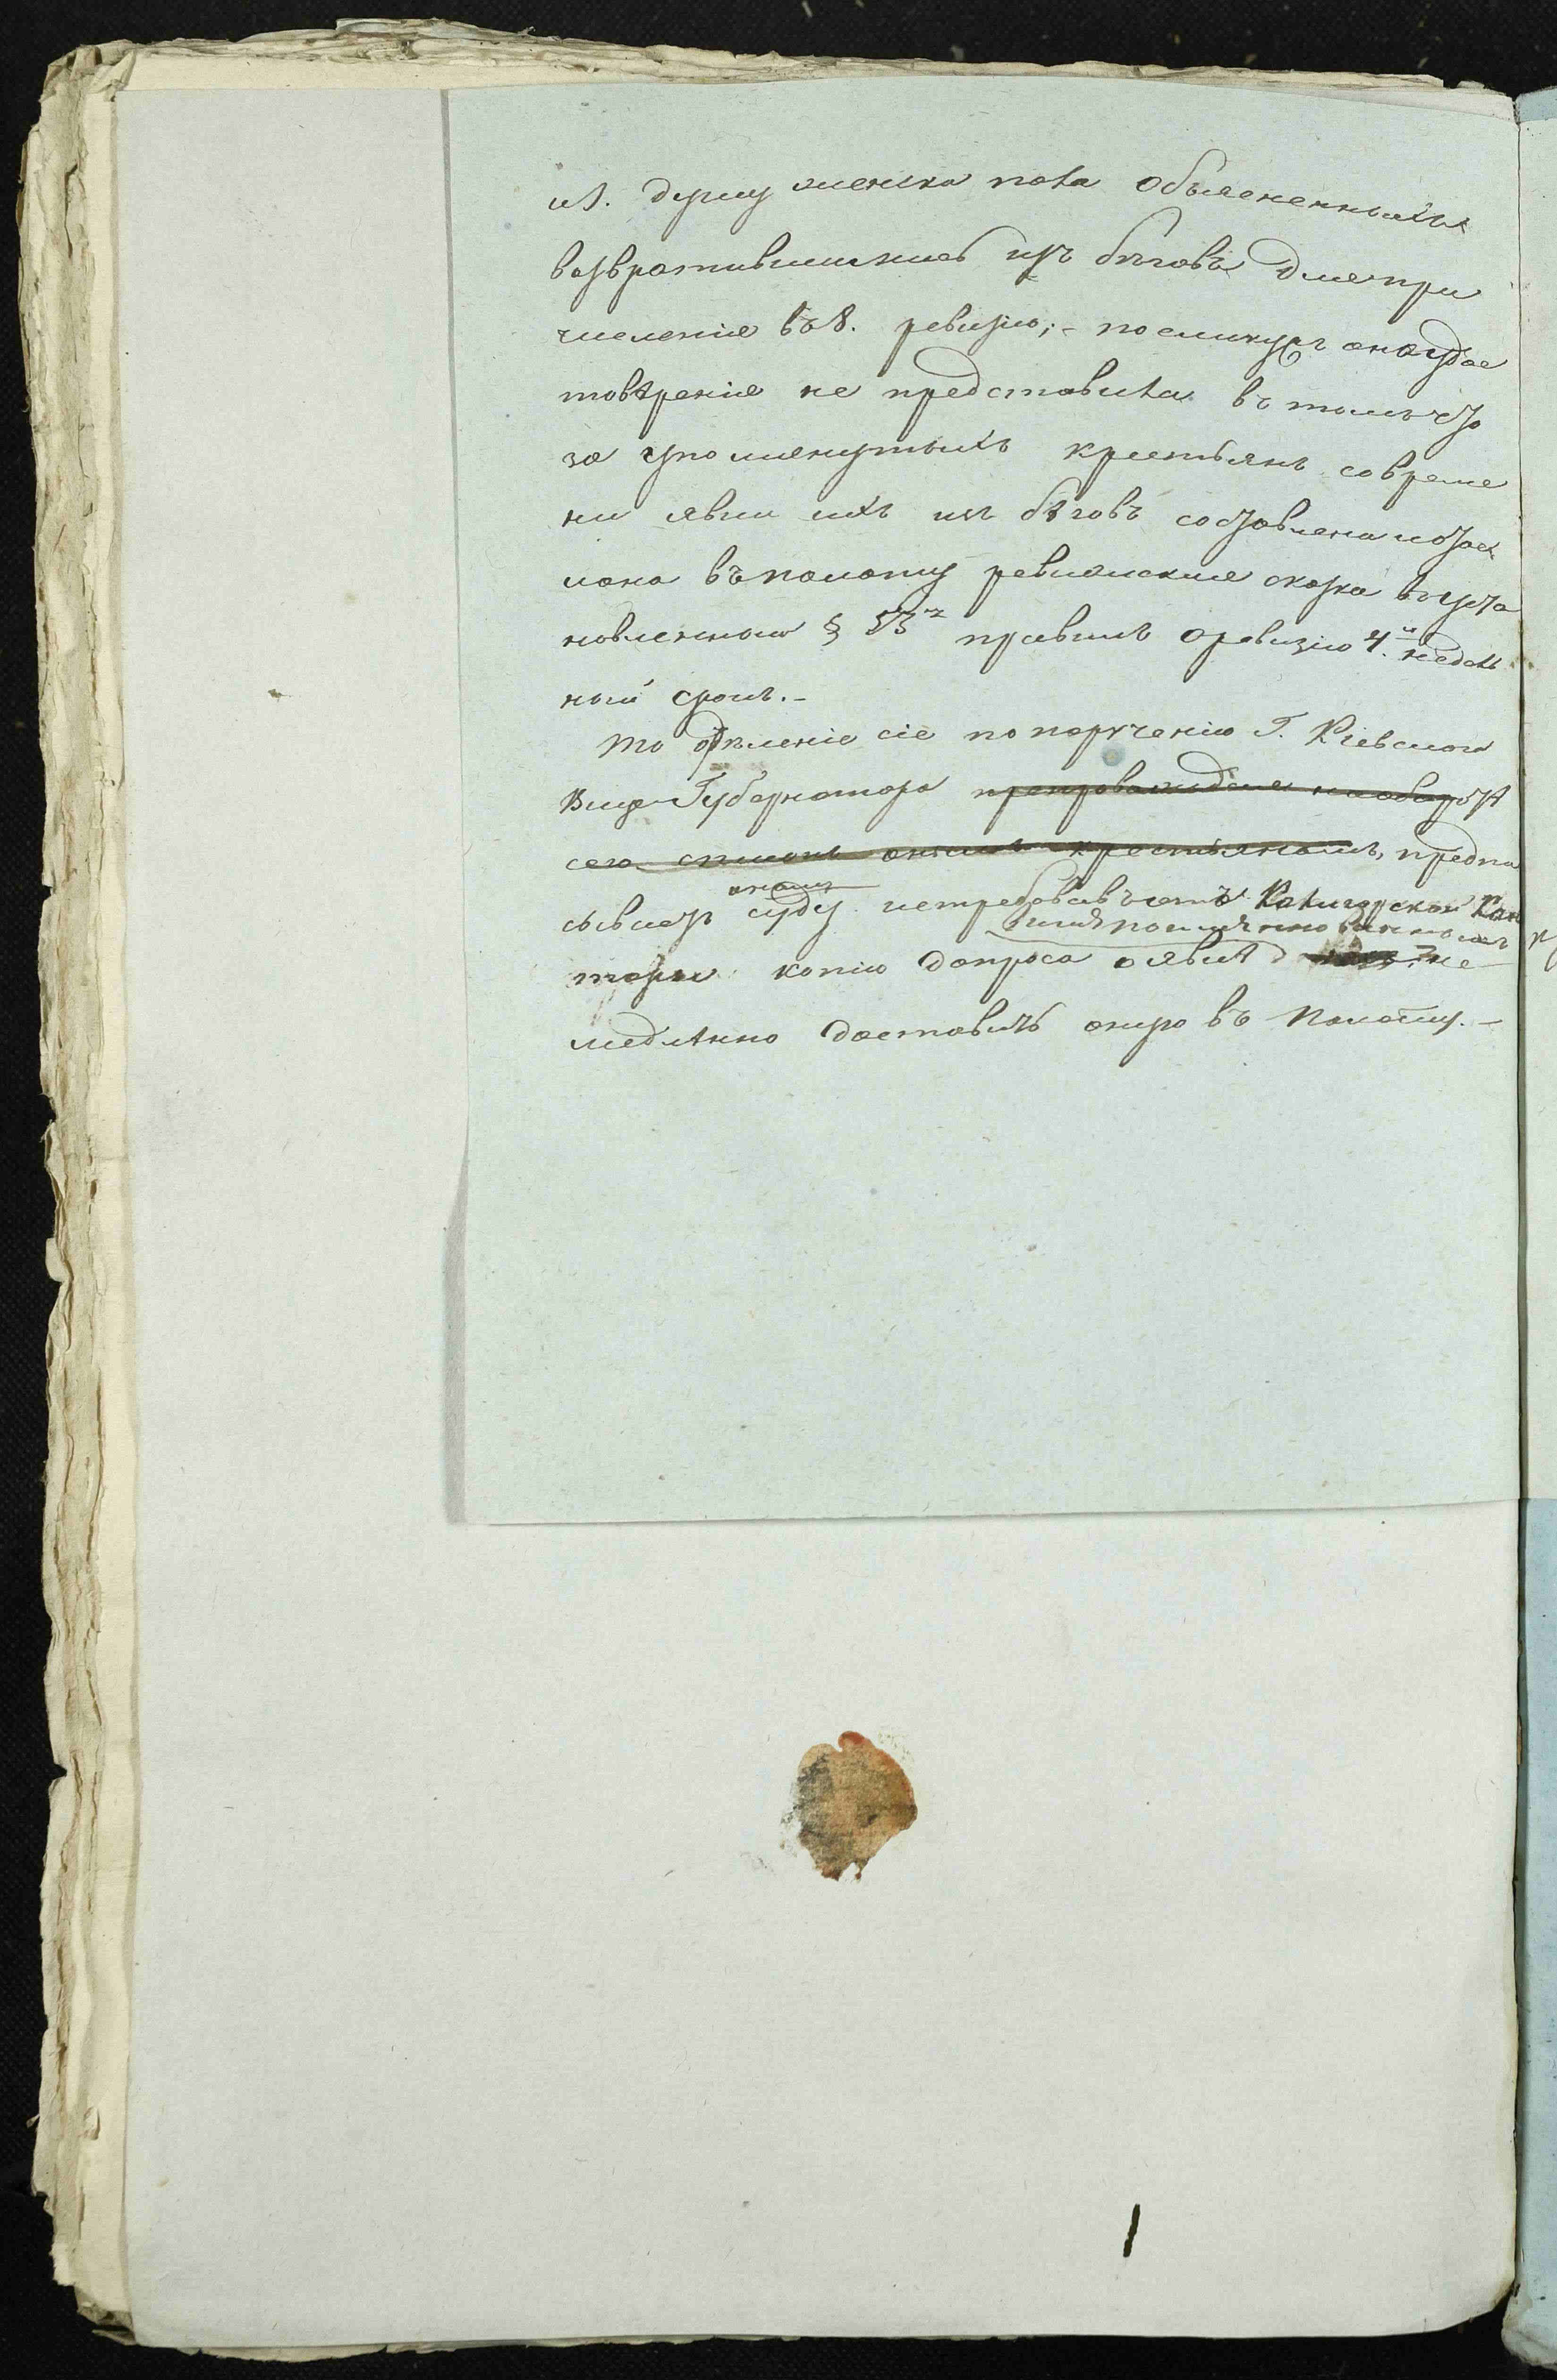 и 1. душу женска пола объясненныхъ
возвратившимися изъ бѣговъ для при
численія въ 8. ревизію; - поелику онаго удос
товѣреніе не представила въ томъ что
за упомянутыхъ крестьянъ со време
ни явки ихъ изъ бѣговъ составлена и подан
лона въ палату ревизская сказка въ уста
новленный § 53 правилъ о ревизіи 4. недѣль
ный срокъ.-
То отдѣленіе сіе по порученію Г. Кіевскаго
Вице-Губернатора препровождая на оборотѣ
сего списокъ онымъ крестьянамъ, предпи
сываетъ оному суду истребовавъ отъ Кагигорской Кан
торы копію допроса о явкѣ поимянно не
медлѣнно доставить оную въ Палату.-